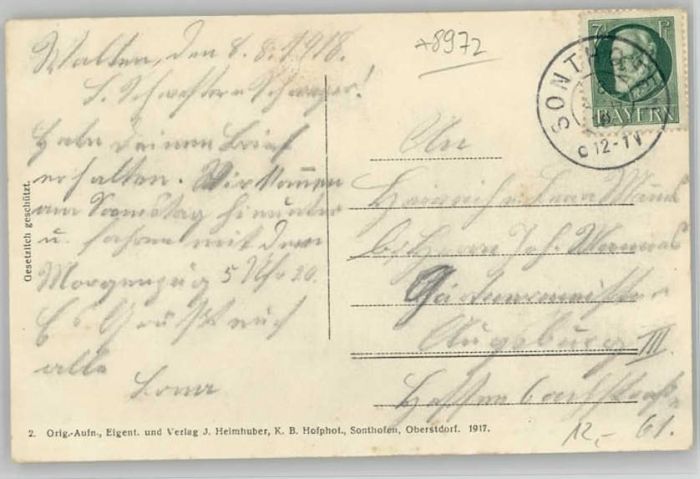 Walten, den 8. 8. 1918.
L. Schwester u. Schwager!
Habe deinen Brief
erhalten. Wir kommen
am Samstag hinunter
u. fahren mit dem
Morgenzug 5 Uhr 20.
Es Grüßt euch
alle
Lona
+8972
7½ Pf
BAYERN
SONTHOFEN
12-1V
An
Heinrich u. Lena
b/ Herrn Joh.
Gärtnermeister
Augsburg III.
Gesetzlich geschützt.
2. Orig.-Aufn., Eigent. und Verlag J. Heimhuber, K. B. Hofphot., Sonthofen, Oberstdorf. 1917.
12,- 61.